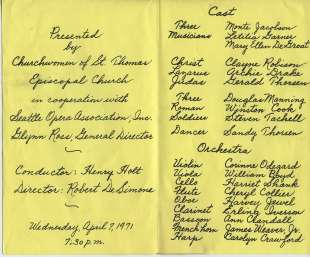 Presented
by
Churchwomen of St. Thomas
Episcopal Church
in cooperation with
Seattle Opera Association, Inc.
Glynn Ross, General Director
Conductor: Henry Holt
Director: Robert DeSimone
Wednesday, April 7, 1971
7:30 p.m.
Cast
Three Monte Jacobson
Musicians Letitia Garner
Mary Ellen DeGroat
Christ Clayne Robison
Lazarus Archie Drake
Judas Gerald Thorsen
Three Douglas Manning
Roman Winston Cook
Soldiers Steven Tachell
Dancer Sandy Thorsen
Orchestra
Violin Corinne Odegard
Viola William Boyd
Cello Harriet Shank
Flute Cheryl Collier
Oboe Harvey Jewel
Clarinet Erling Iverson
Bassoon Ann Crandall
French horn James Weaver, Jr.
Harp Carolyn Crawford